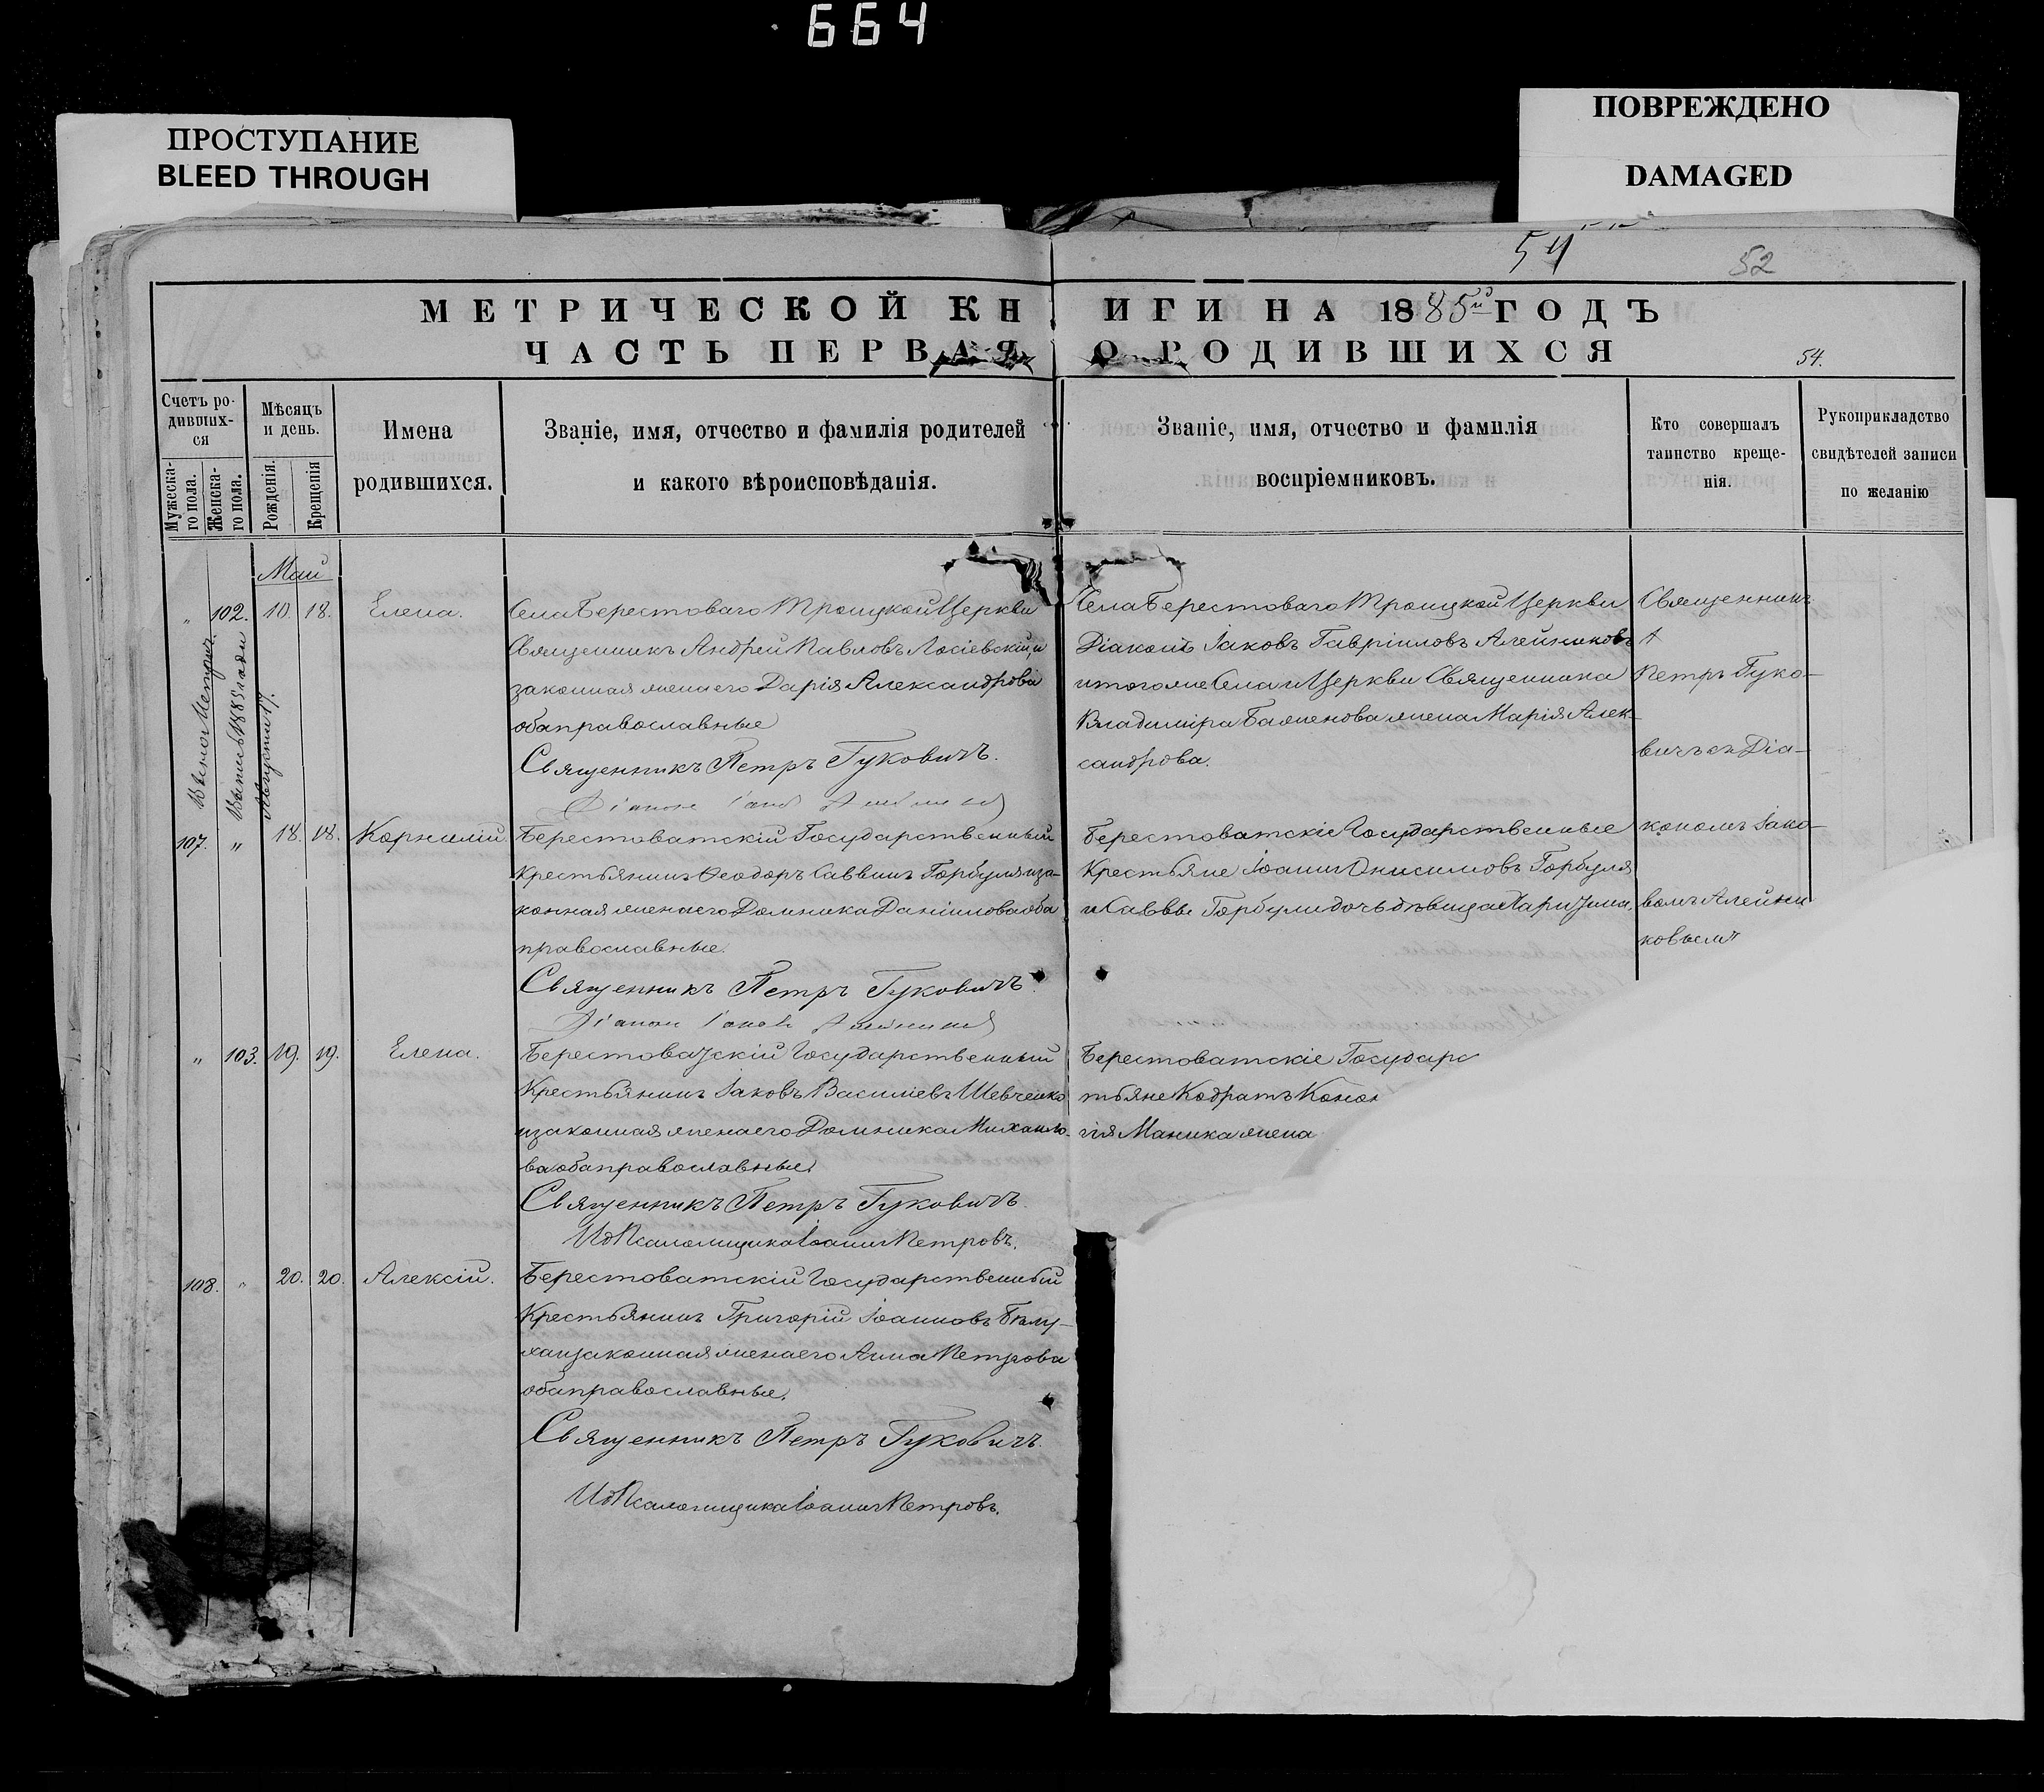 664
ПРОСТУПАНИЕ
BLEED THROUGH
ПОВРЕЖДЕНО
DAMAGED
54
52
МЕТРИЧЕСКОЙ КНИГИ НА 1885й ГОДЪ
ЧАСТЬ ПЕРВАЯ О РОДИВШИХСЯ
54.
Счетъ ро-
дивших-
ся
Мужеска-
го пола.
Женска-
го пола.
Мѣсяцъ
и день.
Рожденія.
Крещенія
Имена
родившихся.
Званіе, имя, отчество и фамилія родителей
и какого вѣроисповѣданія.
Званіе, имя, отчество и фамилія
воспріемниковъ.
Кто совершалъ
таинство креще-
нія.
Рукоприкладство
свидѣтелей записи
по желанію
Май
" 102. 10. 18. Елена.
Села Берестоваго Троицкой Церкви
Священникъ Андрей Павловъ Лосіевскій, и
законная жена его Дарія Александрова
оба православные
Священникъ Петръ Гуковичъ.
Села Берестоваго Троицкой Церкви
Діаконъ Іаковъ Гавріиловъ Алейниковъ
и того же Села и Церкви Священника
Владиміра Баженова жена Марія Алек-
сандрова.
Священникъ
Петръ Гуко-
вичъ съ Діа-
кономъ Іако-
вомъ Алейни
ковымъ
1885 года
Августа 17.
107. " 18. 18. Корнилій.
Берестоватскій Государственный
Крестьянинъ Ѳеодоръ Саввинъ Горбуля и за-
конная жена его Домника Даніилова оба
православные.
Священникъ Петръ Гуковичъ
Берестоватскіе Государственные
Крестьяне Іоаннъ Онисимовъ Горбуля
и Саввы Горбули дочь дѣвица
" 103. 19. 19. Елена.
Берестоватскій Государственный
Крестьянинъ Іаковъ Василіевъ Шевченко
и законная жена его Домника Михаило-
ва оба православные.
Священникъ Петръ Гуковичъ
ИдПсаломщика Іоаннъ Петровъ.
Берестоватскіе Государс
тьяне Кодратъ Конон
гія Маника жена
108. " 20. 20. Алексій.
Берестоватскій Государственный
Крестьянинъ Григорій Іоанновъ Бѣлу-
ха и законная жена его Анна Петрова
оба православные.
Священникъ Петръ Гуковичъ.
ИдПсаломщика Іоаннъ Петровъ.